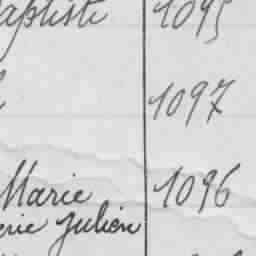 aptiste 1095
1097
Marie 1096
erie Julien